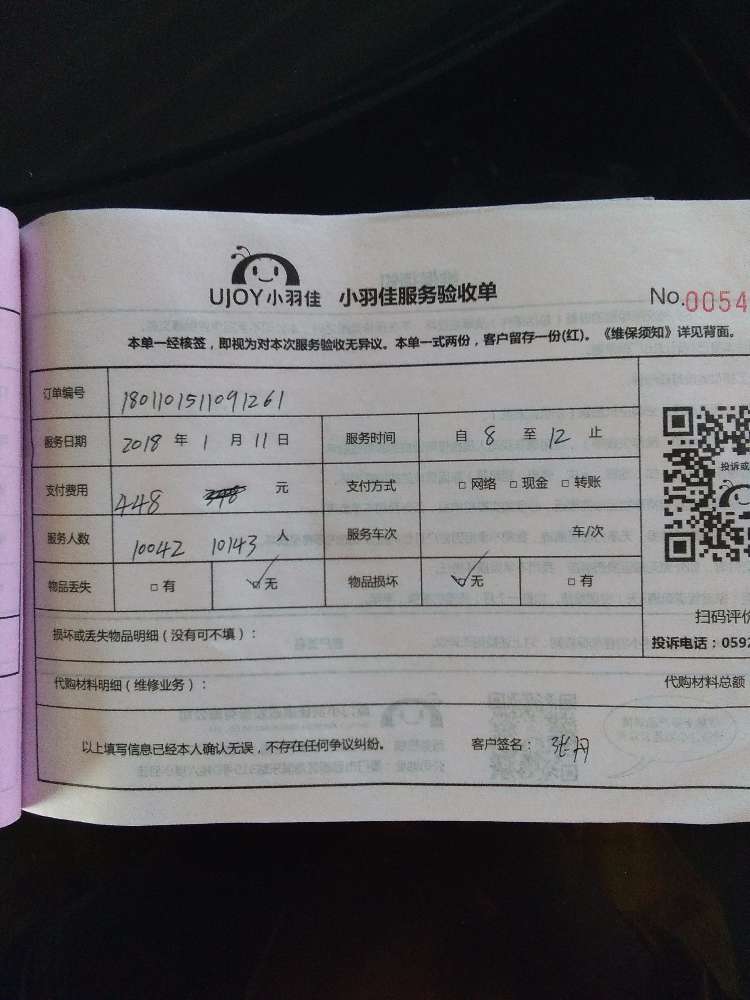 UJOY小羽佳 小羽佳服务验收单 No.0054
本单一经核签，即视为对本次服务验收无异议。本单一式两份，客户留存一份(红)。《维保须知》详见背面。
订单编号 1801101511091261
服务日期 2018 年 1 月 11 日 服务时间 自 8 至 12 止
支付费用 448 元 支付方式 □ 网络 □ 现金 □ 转账
服务人数 10042 10143 人 服务车次 车/次
物品丢失 □ 有 ☑ 无 物品损坏 ☑ 无 □ 有
投诉或
扫码评价
损坏或丢失物品明细（没有可不填）： 投诉电话：0592
代购材料明细（维修业务）： 代购材料总额
以上填写信息已经本人确认无误，不存在任何争议纠纷。 客户签名： 张丹